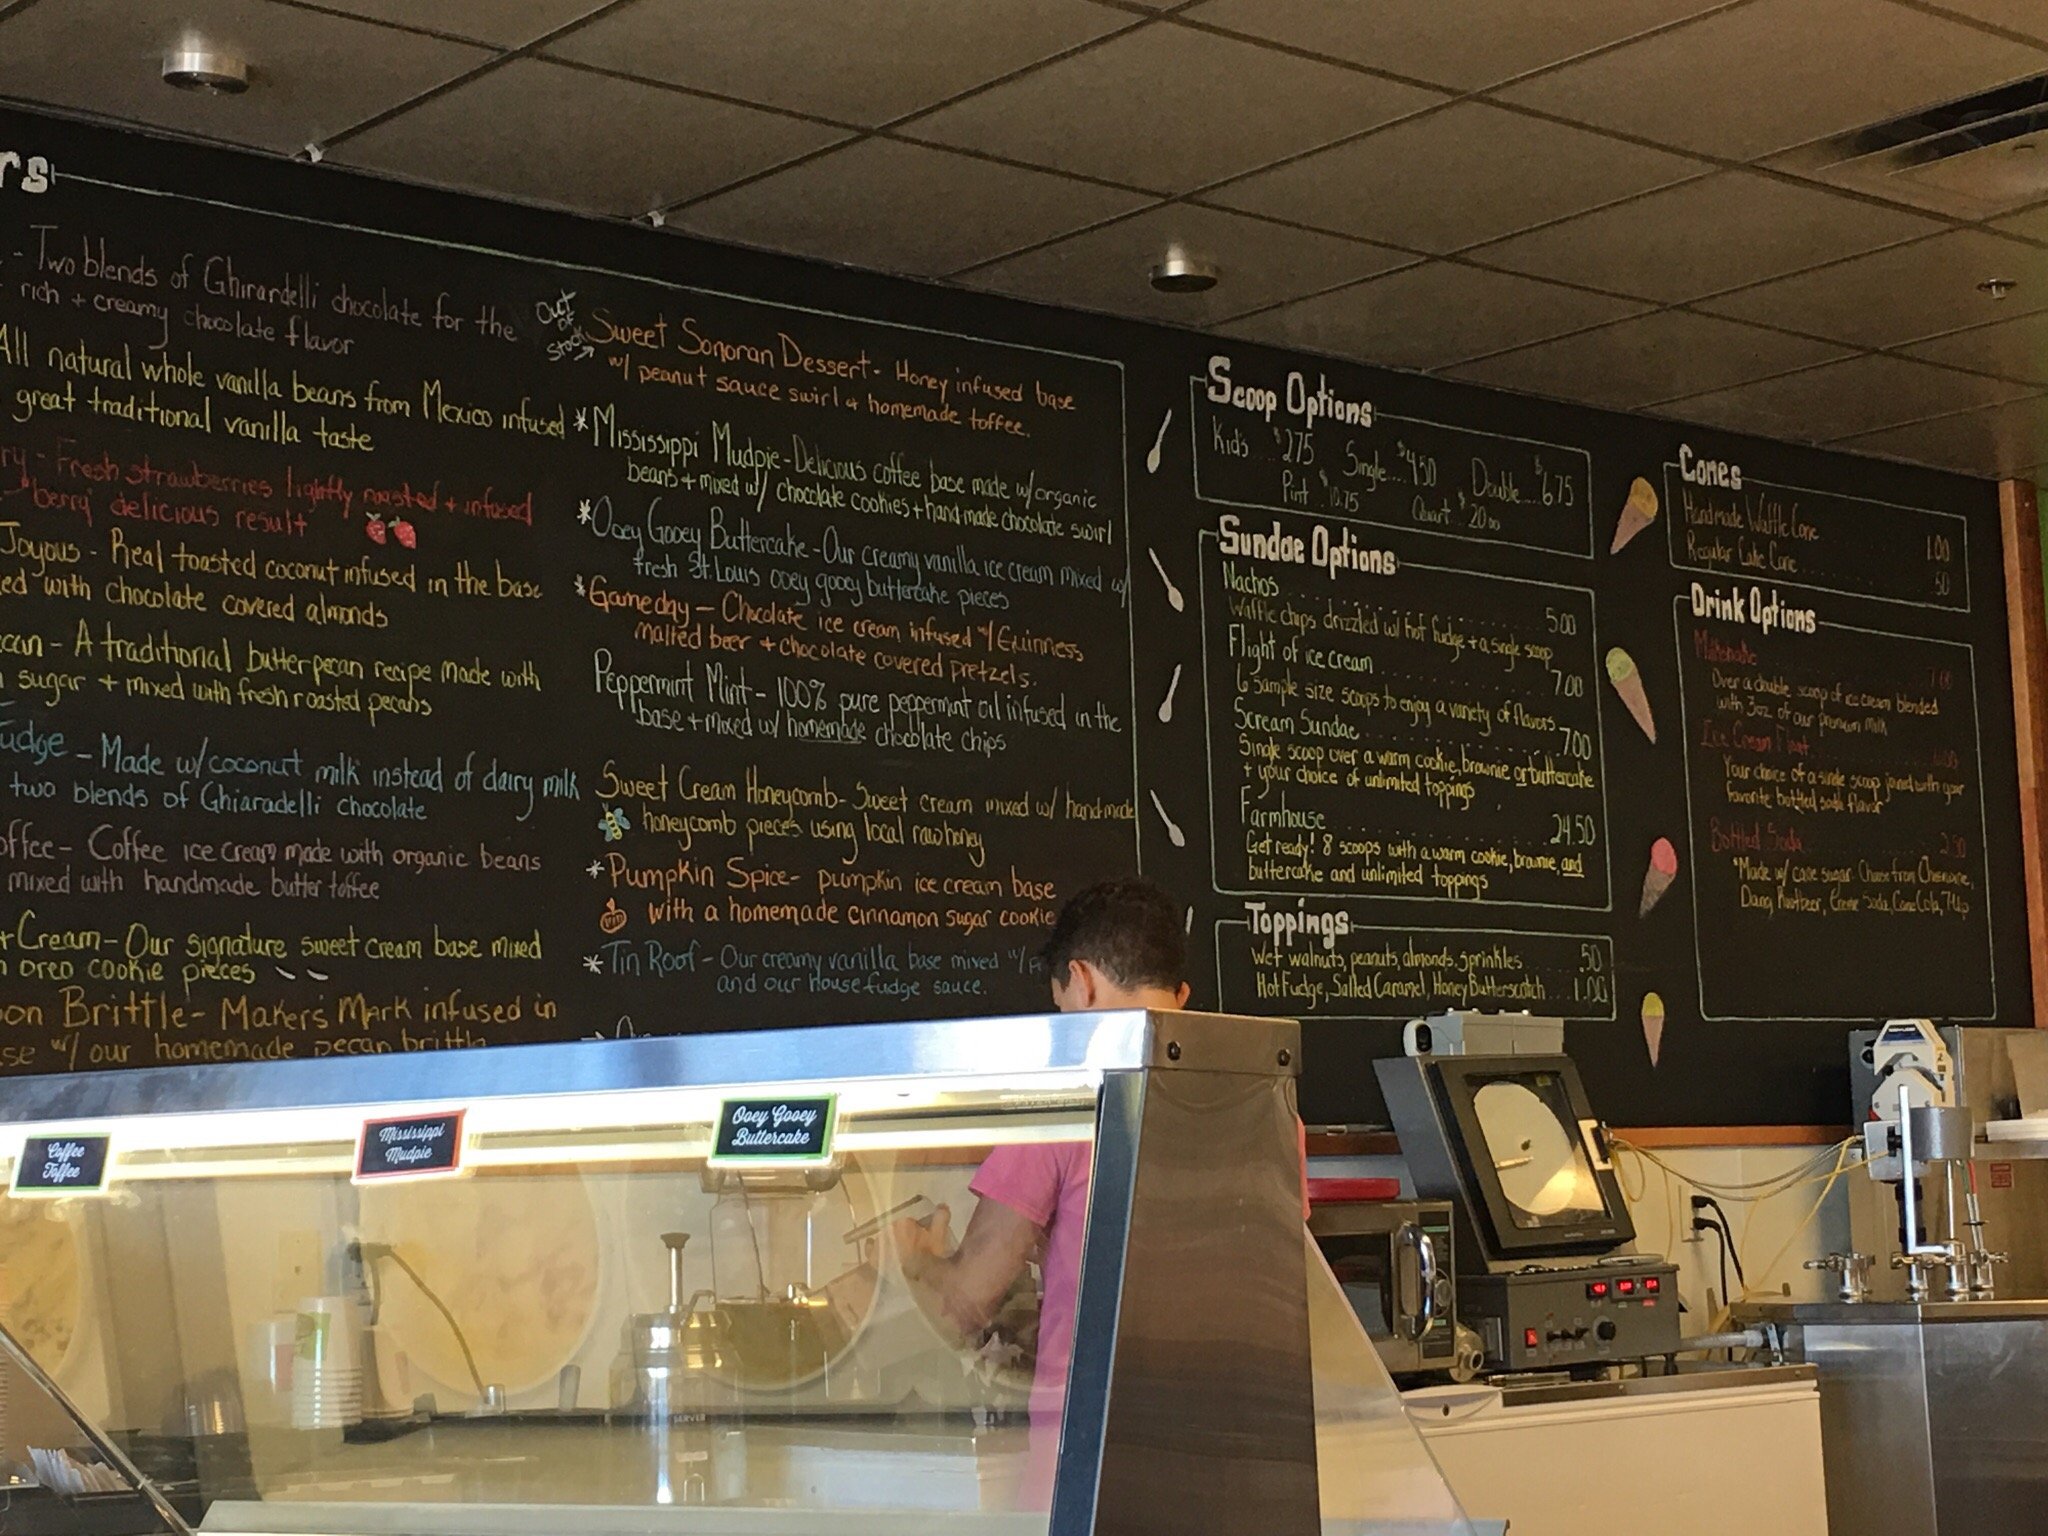 rs
- Two blends of Ghirardelli chocolate for the
rich + creamy chocolate flavor
All natural whole vanilla beans from Mexico infused
great traditional vanilla taste
ry - Fresh strawberries lightly roasted + infused
"berry" delicious result
Joyous - Real toasted coconut infused in the base
ed with chocolate covered almonds
can - A traditional butter pecan recipe made with
sugar + mixed with fresh roasted pecans
udge - Made w/ coconut milk instead of dairy milk
two blends of Ghiaradelli chocolate
offee - Coffee ice cream made with organic beans
mixed with handmade butter toffee
+ Cream - Our signature sweet cream base mixed
oreo cookie pieces
on Brittle - Makers Mark infused in
se w/ our homemade pecan brittle
Out of Stock
Sweet Sonoran Dessert - Honey infused base
w/ peanut sauce swirl + homemade toffee.
* Mississippi Mudpie - Delicious coffee base made w/ organic
beans + mixed w/ chocolate cookies + hand made chocolate swirl
* Ooey Gooey Buttercake - Our creamy vanilla ice cream mixed w/
fresh St. Louis ooey gooey buttercake pieces
* Gameday - Chocolate ice cream infused w/ Guinness
malted beer + chocolate covered pretzels.
Peppermint Mint - 100% pure peppermint oil infused in the
base + mixed w/ homemade chocolate chips
Sweet Cream Honeycomb - Sweet cream mixed w/ handmade
honeycomb pieces using local raw honey
* Pumpkin Spice - pumpkin ice cream base
with a homemade cinnamon sugar cookie
* Tin Roof - Our creamy vanilla base mixed w/
and our house fudge sauce.
Scoop Options
Kid's $2.75 Single.... $4.50 Double.... $6.75
Pint $10.75 Quart $20.00
Sundae Options
Nachos 5.00
Waffle chips drizzled w/ hot fudge + a single scoop
Flight of ice cream 7.00
6 sample size scoops to enjoy a variety of flavors
Scream Sundae 7.00
Single scoop over a warm cookie, brownie or buttercake
+ your choice of unlimited toppings
Farmhouse 24.50
Get ready! 8 scoops with a warm cookie, brownie, and
buttercake and unlimited toppings
Toppings
Wet walnuts, peanuts, almonds, sprinkles .50
Hot Fudge, Salted Caramel, Honey Butterscotch ... 1.00
Cones
Handmade Waffle Cone 1.00
Regular Cake Cone .50
Drink Options
Milkshake
Over a double scoop of ice cream blended
with 3oz of our premium milk
Ice Cream Float
Your choice of a single scoop joined with your
favorite bottled soda flavor
Bottled Soda 2.50
*Made w/ cane sugar. Choose from
Dang Rootbeer, Creme Soda, Coca Cola, 7Up
Coffee
Toffee
Mississippi
Mudpie
Ooey Gooey
Buttercake
SERVER